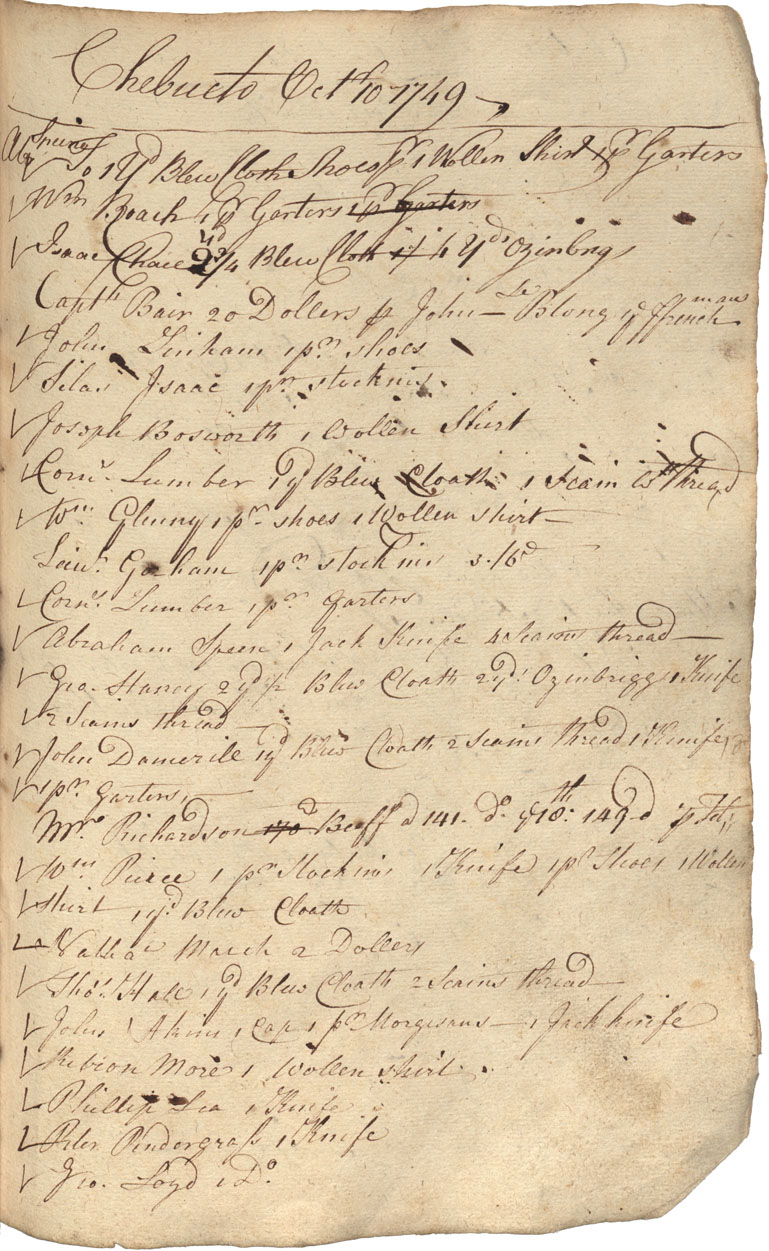 Chebucto Octbr 10 1749
1 Yd Blew Cloth Shoes pr 1 Wollen Shirt 1 pr Garters
Wm Roach 1 pr Garters 1 pr Garters
Isaac Chace 2 3/4 Yd Blew Cloth 4 Yds Ozinbrig
Captn Bair 20 Dollers p John Le Blong ye ffrenchmans
John Linham 1 pr shoes
Silas Isaac 1 pr stockins
Joseph Bosworth 1 Wollen Shirt
Corns Lumber 1 yd Blew Cloath 1 Scain thread
Wm Glenny 1 pr shoes 1 Wollen Shirt
Gorham 1 pr stockins 3/6d
Corns Lumber 1 pr Garters
Abraham Speen 1 Jack Knife 4 Scains thread
Geo. Haney 2 yd 1/2 Blew Cloath 2 yds Ozinbrigg 1 Knife
2 Scains thread
John Damerile 1 yd Blew Cloath 2 Scains thread 1 Knife
1 pr Garters
Mr Richardson 170 Beeff d 141. Do ye 18th 149d
Wm Pierce 1 pr Stockins 1 Knife 1 pr Shoes 1 Wollen
Shirt 1 yd Blew Cloath
March 2 Dollers
Thos Hall 1 yd Blew Cloath 2 Scains thread
John Akins 1 Cap 1 pr Morgisons 1 Jackknife
More 1 Wollen shirt
Phillip Lea 1 Knife
Peter Pendergrass 1 Knife
Geo. Loyd 1 Do